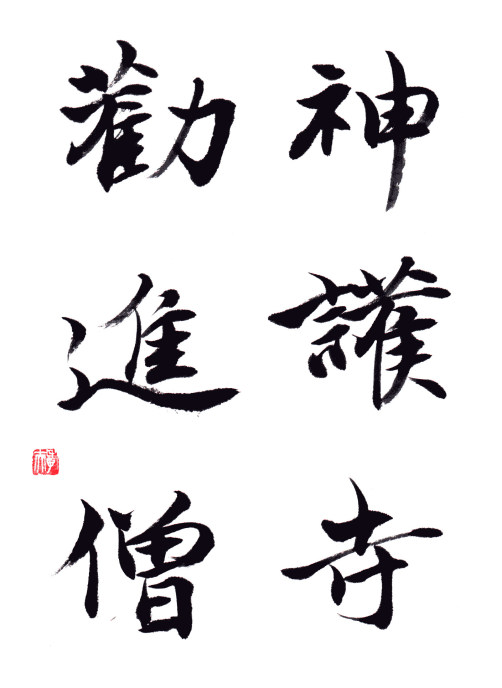 神護寺
勸進僧